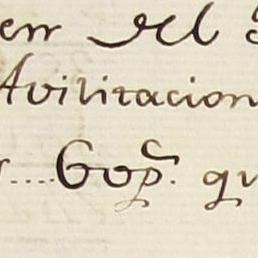 en del
Avilitacion
.... 60ps. qu